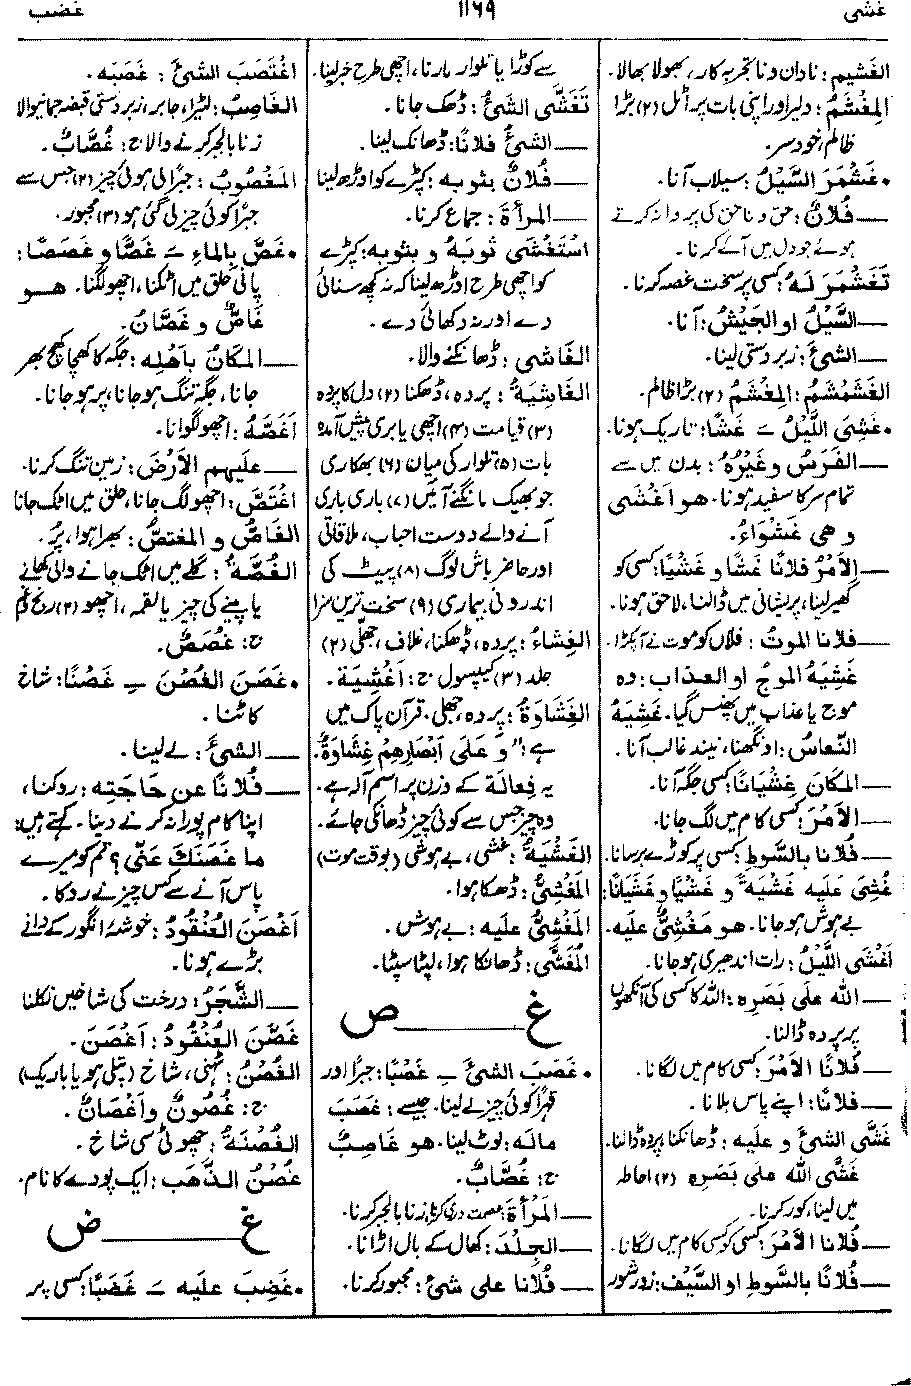 غشی
۱۱۶۹
غضب
الغَشیم: نادان و ناتجربہ کار، بھولا بھالا۔
المِغْشَمُ: دلیر اور اپنی بات پر اٹل (۲) بڑا
ظالم، خودسر۔
• غَشْمَرَ السَّیْلُ: سیلاب آنا۔
— فُلَانٌ: حق و ناحق کی پروا نہ کرتے
ہوئے جو دل میں آئے کرنا۔
تَغَشْمَرَ لَهُ: کسی پر سخت غصہ کرنا۔
— السَّیْلُ او الجَیْشُ: آنا۔
— الشیءَ: زبردستی لینا۔
الغَشَمْشَمُ: المِغْشَمُ (۲) بڑا ظالم۔
• غَشِیَ اللَّیْلُ ـَ غَشًا: تاریک ہونا۔
— الفَرَسُ وغَیْرُهُ: بدن میں سے
تمام سر کا سفید ہونا۔ هو اَغْشَی
و هی غَشْوَاءُ۔
— الاَمْرُ فلانًا غَشًا و غَشْیًا: کسی کو
گھیر لینا، پریشانی میں ڈالنا، لاحق ہونا۔
— فلانا الموتُ: فلاں کو موت نے آپکڑا۔
غَشِیَهُ الموجُ او العذاب: وہ
موج یا عذاب میں پھنس گیا۔ غَشِیَهُ
النُّعاسُ: اونگھنا، نیند غالب آنا۔
— المکانَ غِشْیَانًا: کسی جگہ آنا۔
— الاَمْرَ: کسی کام میں لگ جانا۔
— فُلَانًا بالسَّوطِ: کسی پر کوڑے برسانا۔
غُشِیَ علیه غَشْیَةً و غَشْیًا و غَشَیَانًا:
بے ہوش ہوجانا۔ هو مَغْشِیٌّ علیه۔
اَغْشَی اللَّیْلُ: رات اندھیری ہوجانا۔
— الله علی بَصَرِه: اللہ کا کسی کی آنکھوں
پر پردہ ڈالنا۔
— فُلَانًا الاَمْرَ: کسی کام میں لگانا۔
— فلانًا: اپنے پاس بلانا۔
غَشَّی الشیءَ و علیه: ڈھانکنا، پردہ ڈالنا۔
غَشَّی الله علی بَصَرِه (۲) احاطہ
میں لینا، کور کرنا۔
— فُلَانًا الاَمْرَ: کسی کو کسی کام میں لگانا۔
— فُلَانًا بالسَّوطِ او السَّیْف: زور شور
سے کوڑا یا تلوار مارنا، اچھی طرح خبر لینا۔
تَغَشَّی الشیءُ: ڈھک جانا۔
— الشیءُ فلانًا: ڈھانک لینا۔
— فُلَانٌ بثوبه: کپڑے کو اوڑھ لینا
— المرأةَ: جماع کرنا۔
اسْتَغْشَی ثوبَهُ و بثوبه: کپڑے
کو اچھی طرح اوڑھ لینا کہ نہ کچھ سنائی
دے اور نہ دکھائی دے۔
الغَاشی: ڈھانکنے والا۔
الغَاشِیَةُ: پردہ، ڈھکنا (۲) دل کا پردہ
(۳) قیامت (۴) اچھی یا بری پیش آمدہ
بات (۵) تلوار کی میان (۶) بھکاری
جو بھیک مانگنے آئیں (۷) باری باری
آنے والے دوست احباب، ملاقاتی
اور حاضر باش لوگ (۸) پیٹ کی
اندرونی بیماری (۹) سخت ترین سزا
الغِشَاءُ: پردہ، ڈھکنا، غلاف، جھلی (۲)
جلد (۳) کیپسول ج: اَغْشِیَة۔
الغِشَاوَةُ: پردہ، جھلی۔ قرآن پاک میں
ہے: "وَ عَلَی اَبْصَارِهِمْ غِشَاوَةٌ۔
یہ فِعالَة کے وزن پر اسم آلہ ہے۔
وہ چیز جس سے کوئی چیز ڈھانکی جائے۔
الغَشْیَةُ: غشی، بے ہوشی (بوقت موت)
المَغْشِیُّ: ڈھکا ہوا۔
المَغْشِیُّ علیه: بے ہوش۔
المُغَشَّی: ڈھانکا ہوا، لپٹا سپٹا۔
غ ــــــ ص
• غَصَبَ الشیءَ ـِ غَصْبًا: جبرًا اور
قہرًا کوئی چیز لے لینا۔ جیسے: غَصَبَ
مالَه: لوٹ لینا۔ هو غَاصِبٌ
ج: غُصَّابٌ۔
— المَرْأةَ: عصمت دری کرنا، زنا بالجبر کرنا۔
— الجِلْدَ: کھال کے بال اڑانا۔
— فُلَانا علی شیءٍ: مجبور کرنا۔
اغْتَصَبَ الشیءَ: غَصَبَه۔
الغَاصِبُ: لٹیرا، جابر، زبردستی قبضہ جمانیوالا
زنا بالجبر کرنے والا ج: غُصَّابٌ۔
المَغْصُوبُ: جبرًا لی ہوئی چیز (۲) جس سے
جبرًا کوئی چیز لی گئی ہو (۳) مجبور۔
• غَصَّ بالماءِ ـَ غَصًّا و غَصَصًا:
پانی حلق میں اٹکنا، اچھو لگنا۔ هو
غَاصٌّ و غَصَّانُ۔
— المکانُ بأهْلِه: جگہ کا کھچا کھچ بھر
جانا، جگہ تنگ ہوجانا، پر ہوجانا۔
اَغَصَّهُ: اچھو لگوانا۔
— علیهم الاَرْضَ: زمین تنگ کرنا۔
اغْتَصَّ: اچھو لگ جانا، حلق میں اٹک جانا
الغَاصُّ و المغتصُّ: بھرا ہوا، پُر۔
الغُصَّةُ: گلے میں اٹک جانے والی کھانے
یا پینے کی چیز یا لقمہ، اچھو (۲) رنج و غم
ج: غُصَصٌ۔
• غَصَنَ الغُصْنَ ـِ غَصْنًا: شاخ
کاٹنا۔
— الشیءَ: لے لینا۔
— فُلَانًا عن حَاجَتِه: روکنا،
اپنا کام پورا نہ کرنے دینا۔ کہتے ہیں:
ما غَصَنَكَ عَنِّی؟ تم کو میرے
پاس آنے سے کس چیز نے روکا۔
اَغْصَنَ العُنْقُودُ: خوشۂ انگور کے دانے
بڑے ہونا۔
— الشَّجَرُ: درخت کی شاخیں نکلنا
غَصَّنَ العُنْقُودُ: اَغْصَنَ۔
الغُصْنُ: ٹہنی، شاخ (پتلی ہو یا باریک)
ج: غُصُونٌ واَغْصَانٌ۔
الغُصْنَةُ: چھوٹی سی شاخ۔
غُصْنُ الذَّهَب: ایک پودے کا نام۔
غ ــــــ ض
• غَضِبَ علیه ـَ غَضَبًا: کسی پر